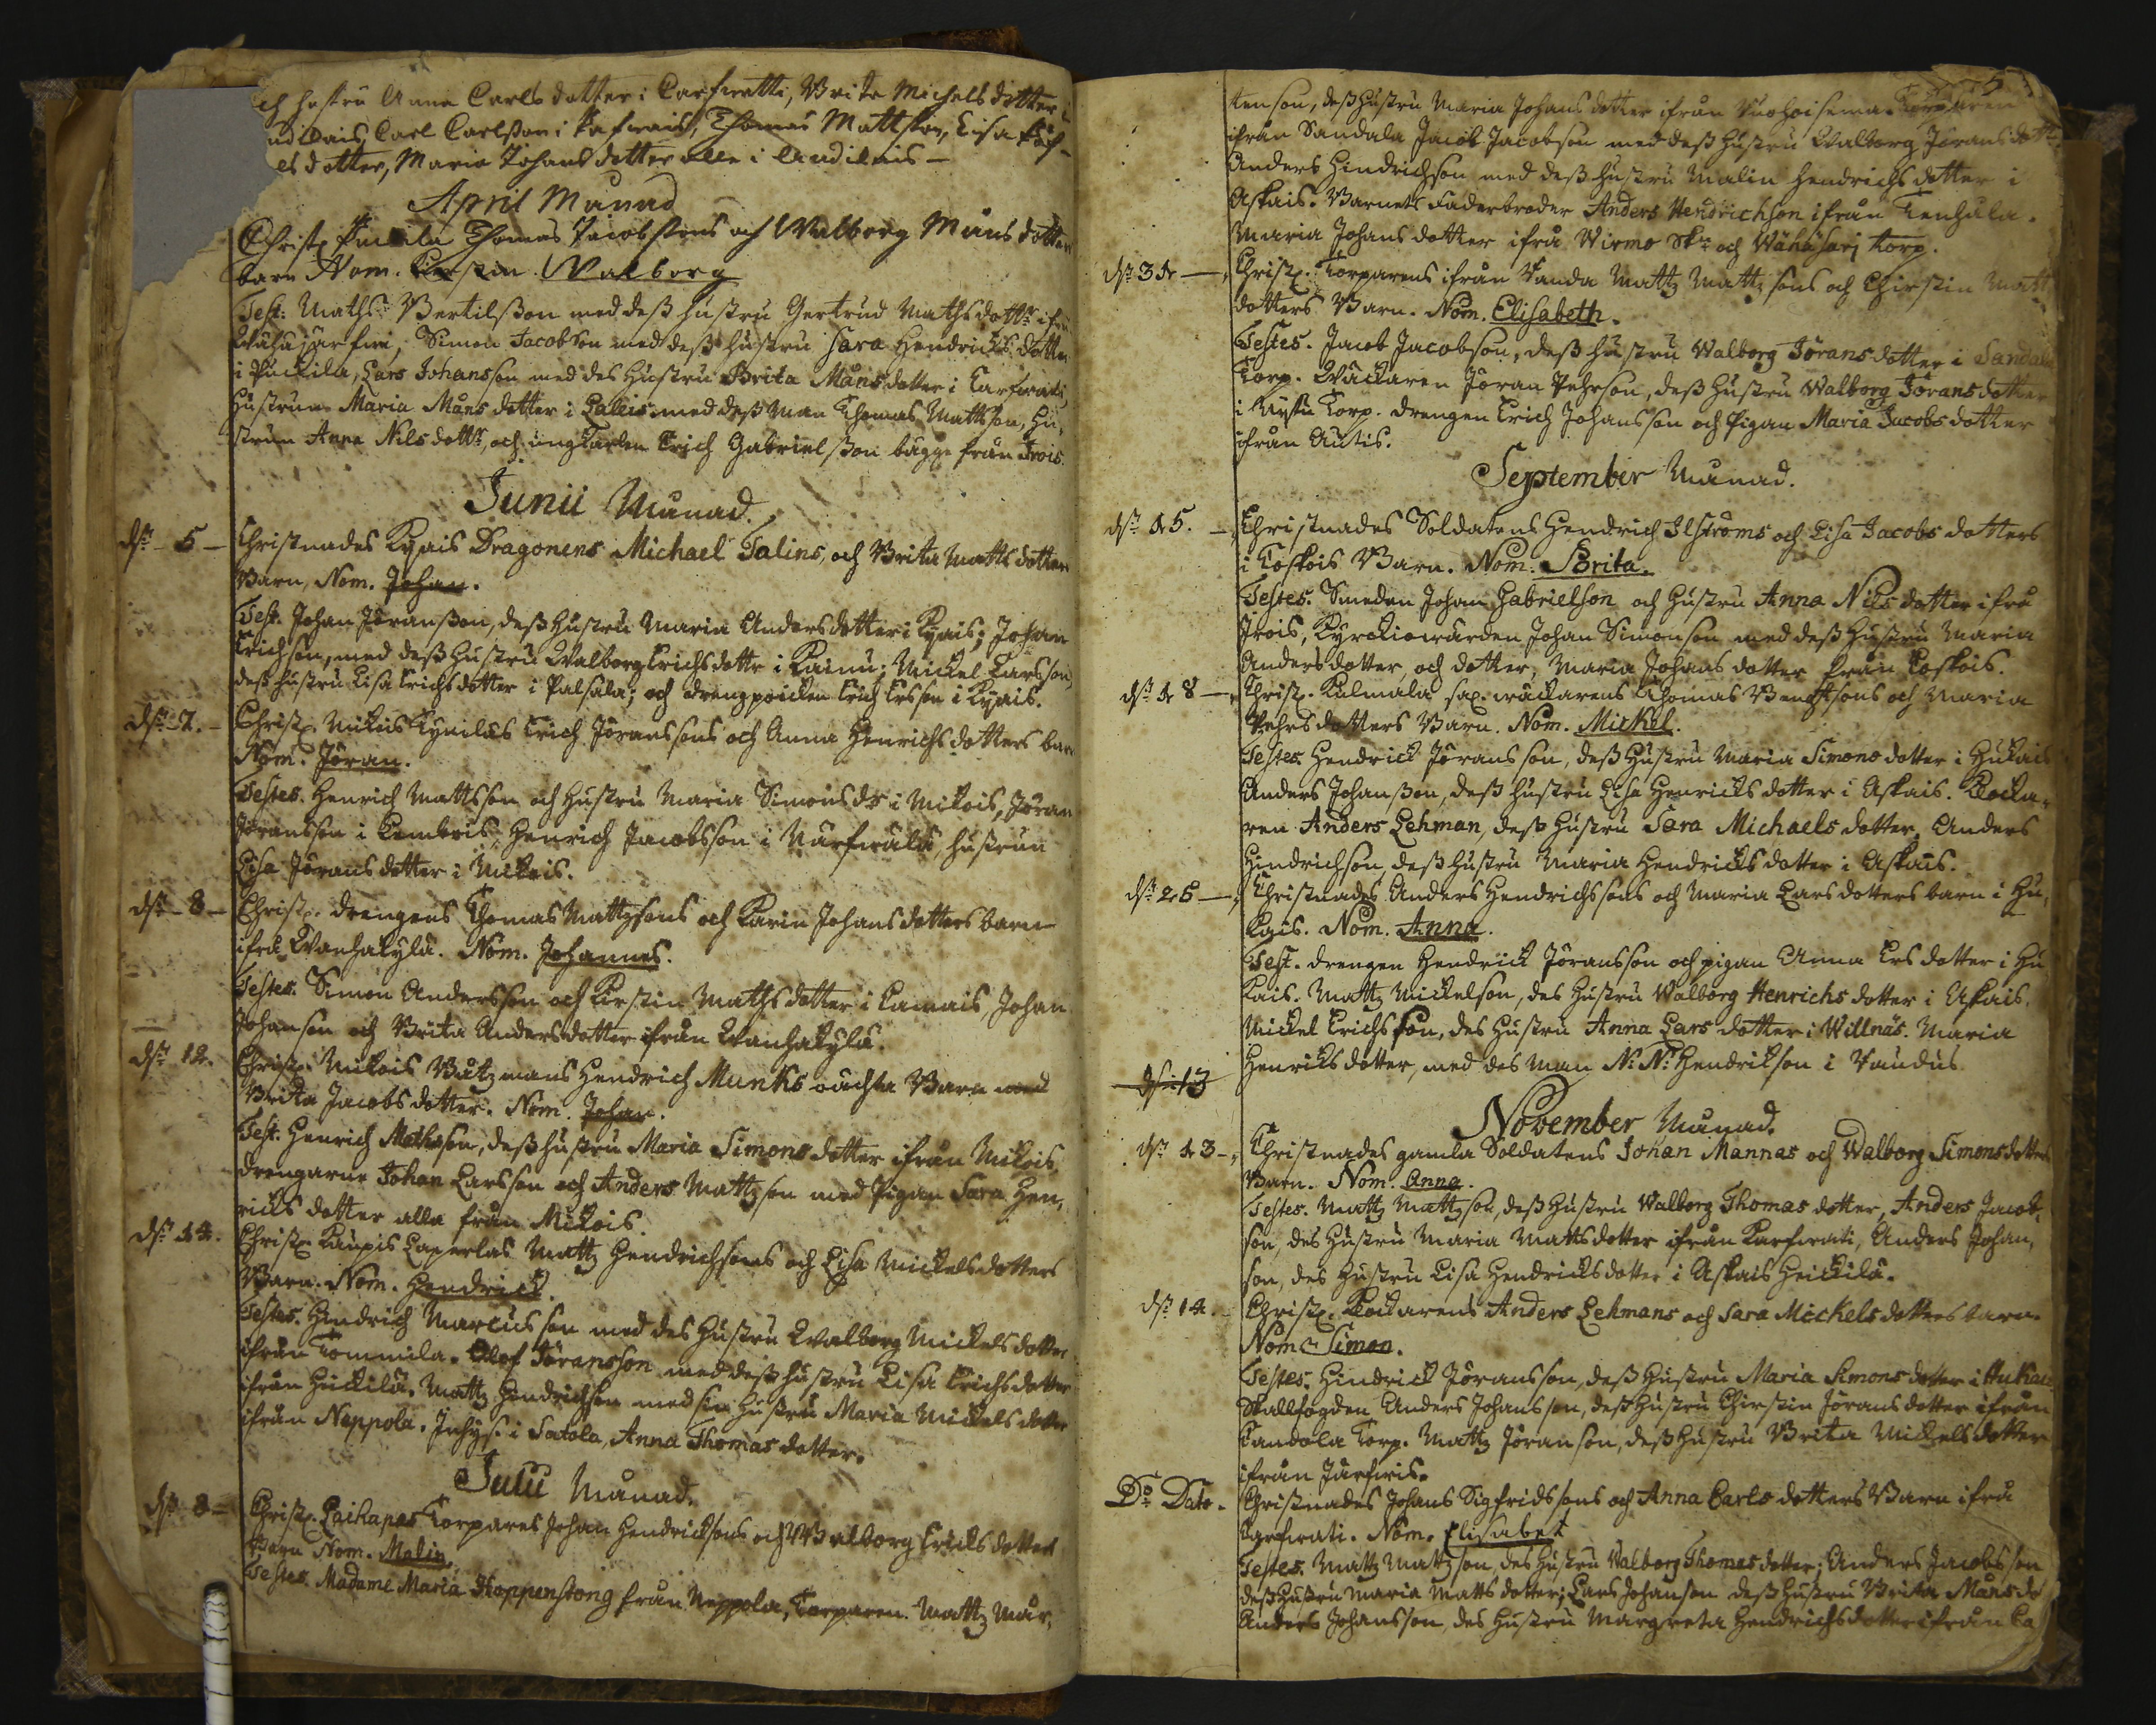 hustru Anna Carls dotter i Carfvatti, Brita Michels dotter i
Carl Carlsson i Thomas Mattsson, Lisa
els dotter, Maria Johans dotter alla i Audilais
April Månad
Christ. Thomas Jacobssons och Walborg Måns dotters
barn Nom. Walborg
Test: Maths Bertilsson med dess hustru Gertrud Maths dottr ifrån
Simon Jacobson med dess hustru Sara Hendrichs dotter
i Puckila, Lars Johansson med des hustru Brita Måns dotter i Carfvatti
Hustrun Maria Måns dotter i Laleis med dess Man Thomas Mattsson, Hu-
strun Anna Nils dottr, och ungkarlen Erich Gabrielsson bägge från Irois.
Junii Månad.
dn 5 Christnades Kyais Dragonens Michael Talins, och Brita Matts dotters
Barn, Nom. Johan.
Test. Johan Jöransson, dess hustru Maria Anders dotter i Kyais; Johan
Erichson, med dess hustru Walborg Erichs dottr i Kainu; Mickel Larsson,
dess hustru Lisa Erichs dotter i Palsala; och drengpoicken Erich Ersson i Kyais.
dn 7. Christ. Mikois Erich Jöranssons och Anna Henrichs dotters barn
Nom. Jöran.
Testes. Henrich Mattsson och hustru Maria Simons dr i Mikois, Jöran
Jöransson i Henrich Jacobsson i hustrun
Lisa Jörans dotter i Mikois.
dn 8 Christ. drengens Thomas Mattzsons och Karin Johans dotters barn
ifrå Wanhakylä. Nom. Johannes.
Testes. Simon Andersson och Kirstin Maths dotter i Johan
Johanson och Brita Anders dotter ifrån Wanhakylä.
dn 12. Christ. Mikois Båtzmans Hendrich Munks Barn med
Brita Jacobs dotter. Nom. Johan.
Test. Henrich Mathsson, dess hustru Maria Simons dotter ifrån Mikois
drengarne Johan Larsson och Anders Mattzson med Pigan Sara Hen,
ricks dotter alla från Mikois.
dn 14. Christ. Kaupis Laperlas Mattz Hendrichsons och Lisa Mickels dotters
Barn. Nom. Hendrick.
Testes. Hindrich Marcusson med des hustru Walborg Mickels dotter
ifrån Tommila. Olof Jöransson med dess hustru Lisa Erichs dotter
ifrån Huckila. Mattz Hendrichson med sin hustru Maria Mickels dotter
ifrån Neppola. Inhys. i Satola, Anna Thomas dotter.
Julii Månad.
dn 8 Christ. Laihapas Torpares Johan Hendricksons och Walborg Ericks dotters
Barn Nom. Malin.
Testes. Madame Maria Hoppenstong från Neppola, Torparen Mattz Mår,
5
tenson, dess hustru Maria Johans dotter ifrån Torparen
ifrån Sandala Jacob Jacobson med dess hustru Walborg Jörans dottr
Anders Hindrichson med dess hustru Malin Hendrichs dotter i
Askais. Barnets Faderbroder Anders Hendrichson ifrån Tenhula.
Maria Johans dotter ifrå Wirmo Skn och Wähäsari Torp.
dn 31 Christ. Torparens ifrån Vanda Mattz Mattzsons och Christin Matt
dotters Barn. Nom. Elisabeth.
Testes. Jacob Jacobson, dess hustru Walborg Jörans dotter i Sandala
Torp. Wäckaren Jöran Pehrson, dess hustru Walborg Jörans dotter
i Torp. drengen Erich Johansson och Pigan Maria Jacobs dotter
ifrån Autis.
September Månad.
dn 15. Christnades Soldatens Hendrich Ilströms och Lisa Jacobs dotters
i Koskois Barn. Nom. Brita.
Testes. Smeden Johan Gabrielson och hustru Anna Nils dotter ifrå
Irois, Kyrckiowärden Johan Simonson med dess hustru Maria
Anders dotter, och dotter, Maria Johans dotter från Koskois.
dn 18 Christ. Kulmala sax. wäckarens Thomas Bengtsons och Maria
Pehrs dotters Barn. Nom. Mickel.
Testes. Hendrick Jöransson, dess hustru Maria Simons dotter i Hukais
Anders Johansson, dess hustru Lisa Henricks dotter i Askais. Klocka-
ren Anders Lehman, dess hustru Sara Michaels dotter, Anders
Hindrichson, dess hustru Maria Hendricks dotter i Askais.
dn 26 Christnades Anders Hendrichssons och Maria Lars dotters barn i Hu,
kais. Nom. Anna.
Test. drengen Hendrick Jöransson och pigan Anna Ers dotter i Hu
kais. Mattz Mickelson, des hustru Walborg Henrichs dotter i Askais.
Mickel Erichsson, des hustru Anna Lars dotter i Willnäs. Maria
Henricks dotter, med des man N: N: Hendrikson i Vaudus
dn 13
November Månad.
dn 13 Christnades gamla Soldatens Johan Mannas och Walborg Simons dotters
Barn. Nom. Anna.
Testes. Mattz Mattzson, dess hustru Walborg Thomas dotter, Anders Jacob,
son, des hustru Maria Matts dotter ifrån Karfvati, Anders Johan,
son, des hustru Lisa Hendricks dotter i Askais Heickilä.
dn 14. Christ. Klockarens Anders Lehmans och Sara Mickels dotters barn.
Nom Simon.
Testes. Hindrick Jöransson, dess hustru Maria Simons dotter i Hukais
Skallfogden Anders Johansson, dess hustru Christin Jörans dotter ifrån
Torp. Mattz Jöranson, dess hustru Brita Mickels dotter
ifrån Järfvis.
Do Dato. Christnades Johans Sigfridssons och Anna Carls dotters Barn ifrå
Karfvati. Nom. Elisabet
Testes. Mattz Mattzson, des hustru Walborg Thomas dotter; Anders Jacobsson
dess hustru Maria Matts dotter; Lars Johanson dess hustru Brita Måns do
Anders Johansson, des hustru Margreta Hendrichs dotter ifrån Ca